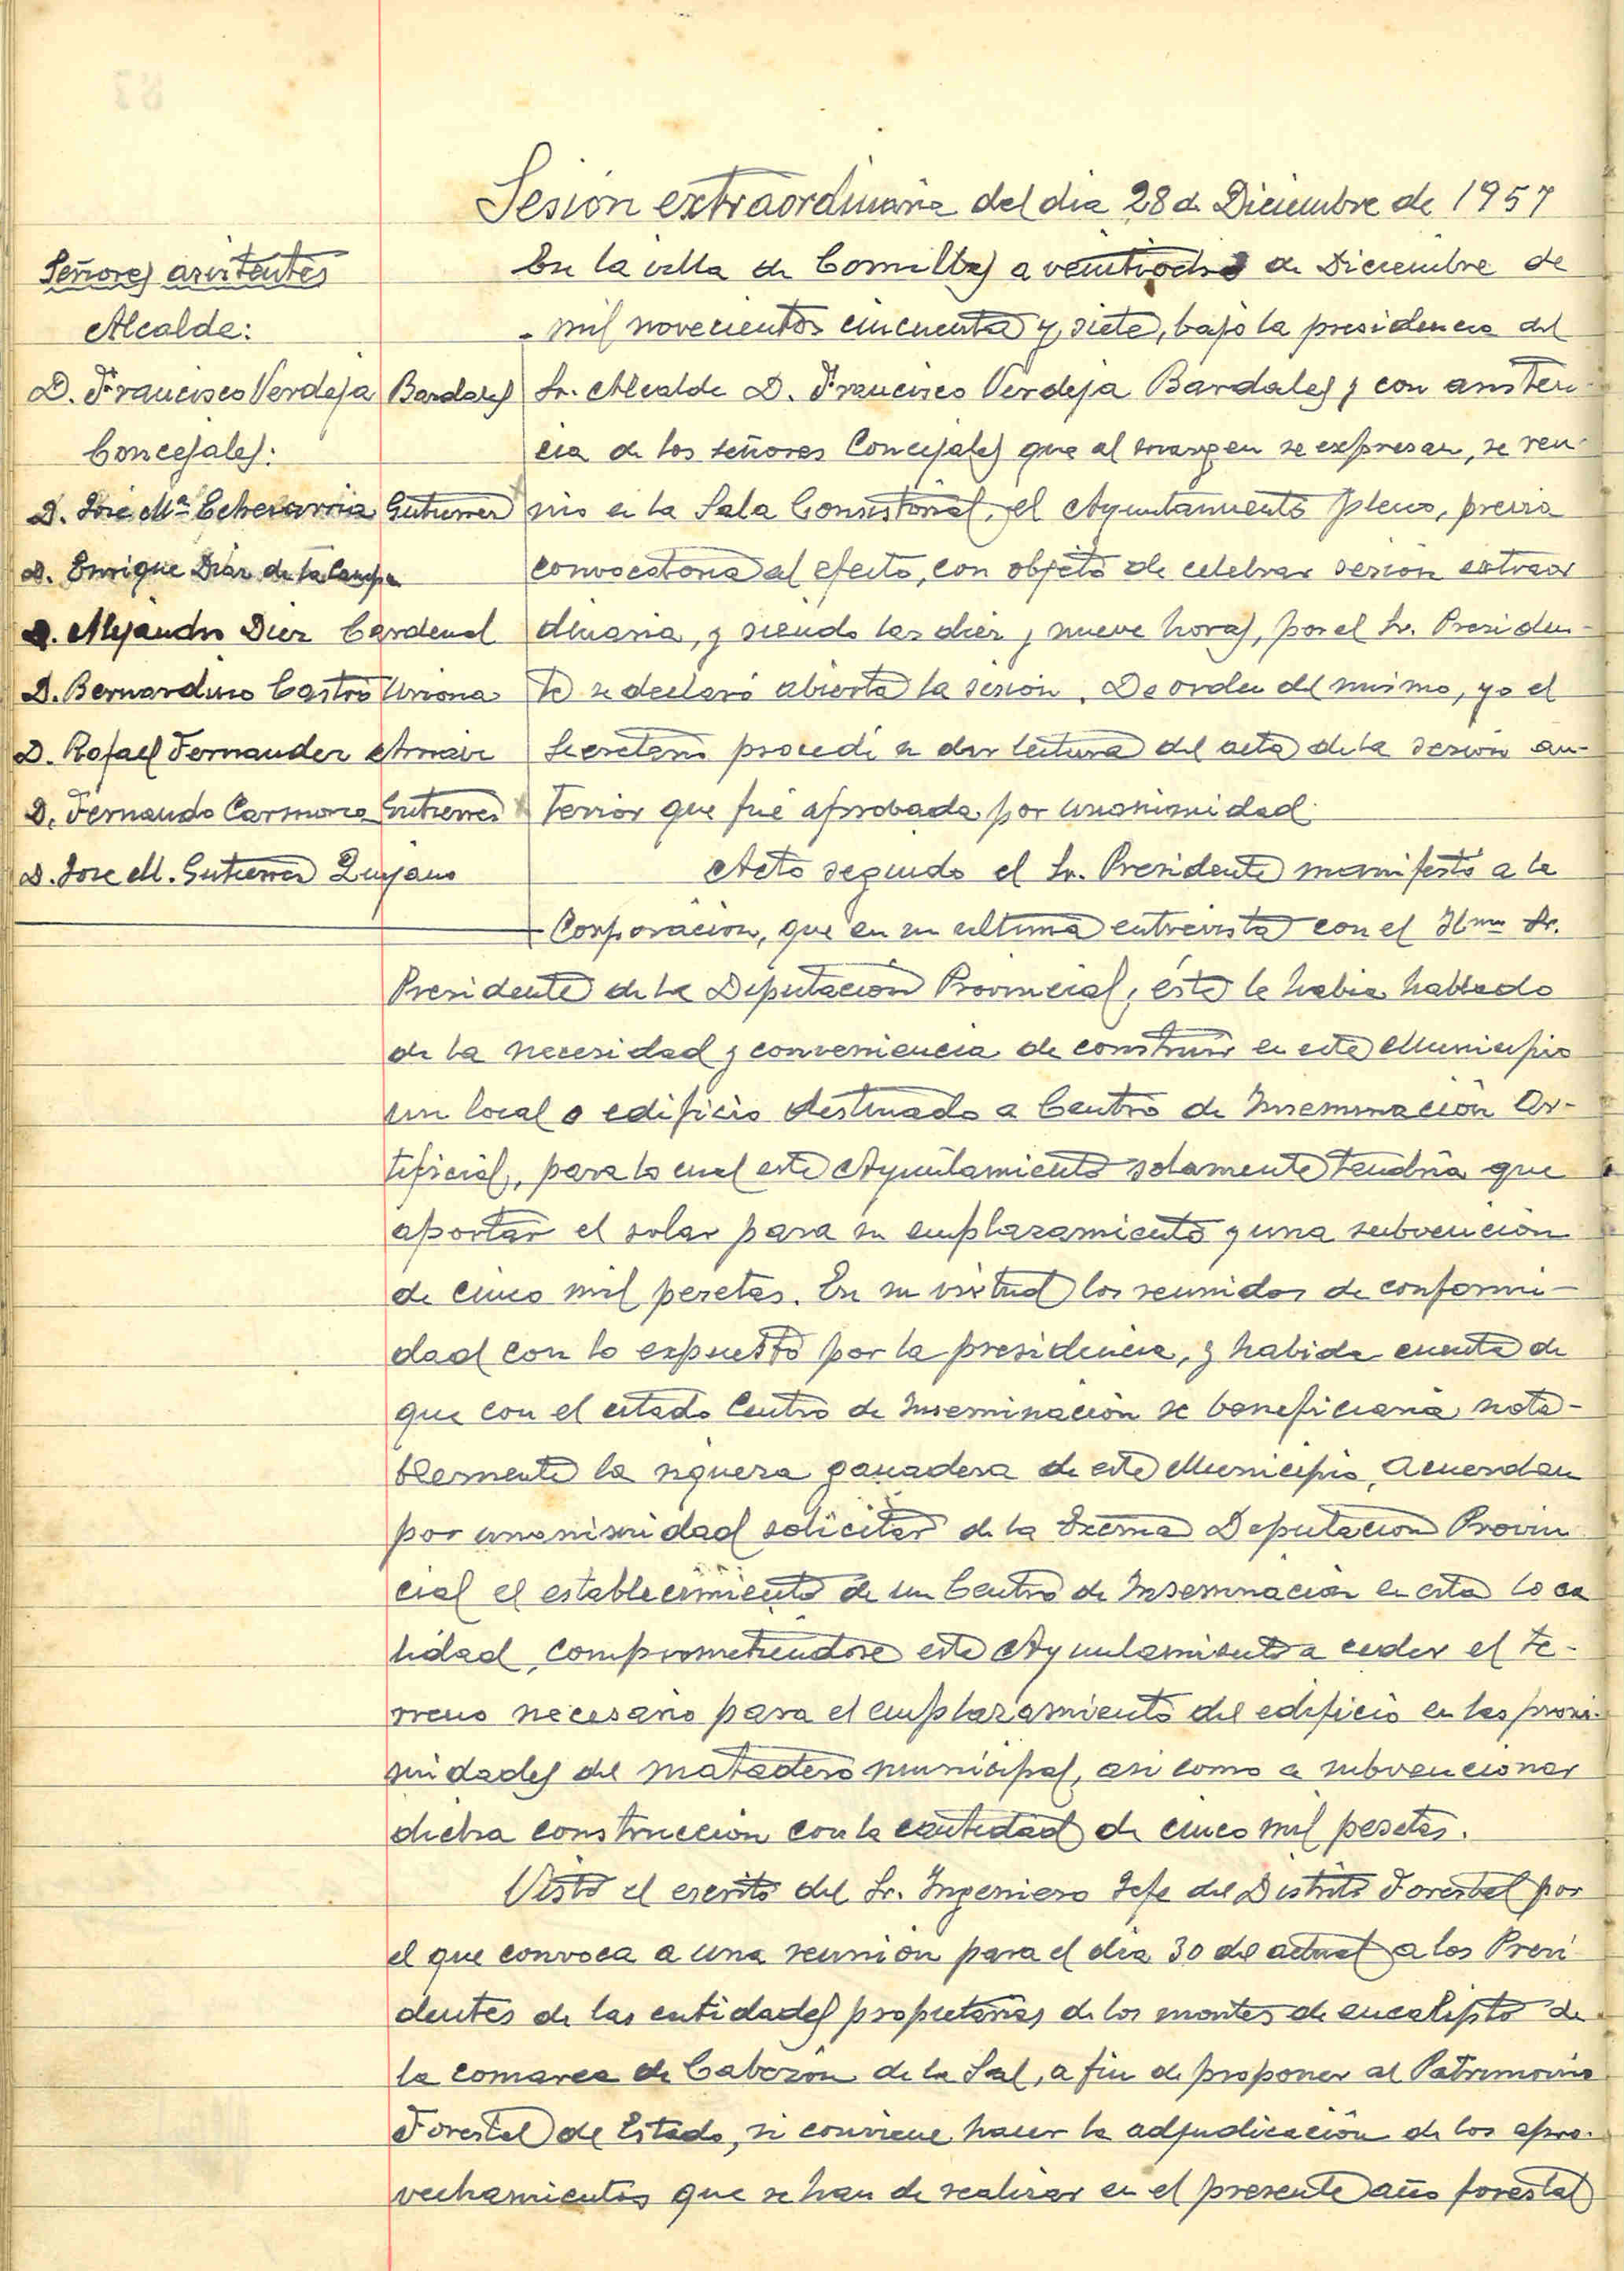 Sesión extraordinaria del dia 28 de Diciembre de 1957
Señores asistentes
Alcalde:
D. Francisco Verdeja Bardales
Concejales:
D. José Mª Echevarria Gutierrez
D. Enrique Diaz de la Campa
D. Alejandro Diez Cardenal
D. Bernardino Castro Uriona
D. Rafael Fernandez
D. Fernando Carmona Gutierrez
D. Jose M. Gutierrez Quijano
En la villa de Comillas a veintiocho de Diciembre de
mil novecientos cincuenta y siete, bajo la presidencia del
Sr. Alcalde D. Francisco Verdeja Bardales y con asisten-
cia de los señores Concejales que al margen se expresan, se reu-
nio en la Sala Consistorial, el Ayuntamiento pleno, previa
convocatoria al efecto, con objeto de celebrar sesión extraor
dinaria, y siendo las diez y nueve horas, por el Sr. Presiden-
te se declaró abierta la sesión. De orden del mismo, yo el
Secretario procedí a dar lectura del acta de la sesión an-
terior que fué aprobada por unanimidad.
Acto seguido el Sr. Presidente manifestó a la
Corporación, que en su ultima entrevista con el Ilmo Sr.
Presidente de la Diputación Provincial, éste le habia hablado
de la necesidad y conveniencia de construir en este Municipio
un local o edificio destinado a Centro de Inseminación Ar-
tificial, para lo cual este Ayuntamiento solamente tendría que
aportar el solar para su emplazamiento y una subvención
de cinco mil pesetas. En su virtud los reunidos de conformi-
dad con lo expuesto por la presidencia, y habida cuenta de
que con el citado Centro de Inseminación se beneficiaria nota-
blemente la riqueza ganadera de este Municipio, Acuerdan
por unanimidad solicitar de la Excma Diputación Provin
cial el establecimiento de un Centro de Inseminación en esta loca
lidad, comprometiendose este Ayuntamiento a ceder el te-
rreno necesario para el emplazamiento del edificio en las proxi-
midades del matadero municipal, asi como a subvencionar
dicha construcción con la cantidad de cinco mil pesetas.
Visto el escrito del Sr. Ingeniero Jefe del Distrito Forestal por
el que convoca a una reunión para el dia 30 del actual a los Presi
dentes de las entidades propietarias de los montes de eucalipto de
la comarca de Cabezón de la Sal, a fin de proponer al Patrimonio
Forestal de Estado, si conviene hacer la adjudicación de los apro-
vechamientos que se han de realizar en el presente año forestal